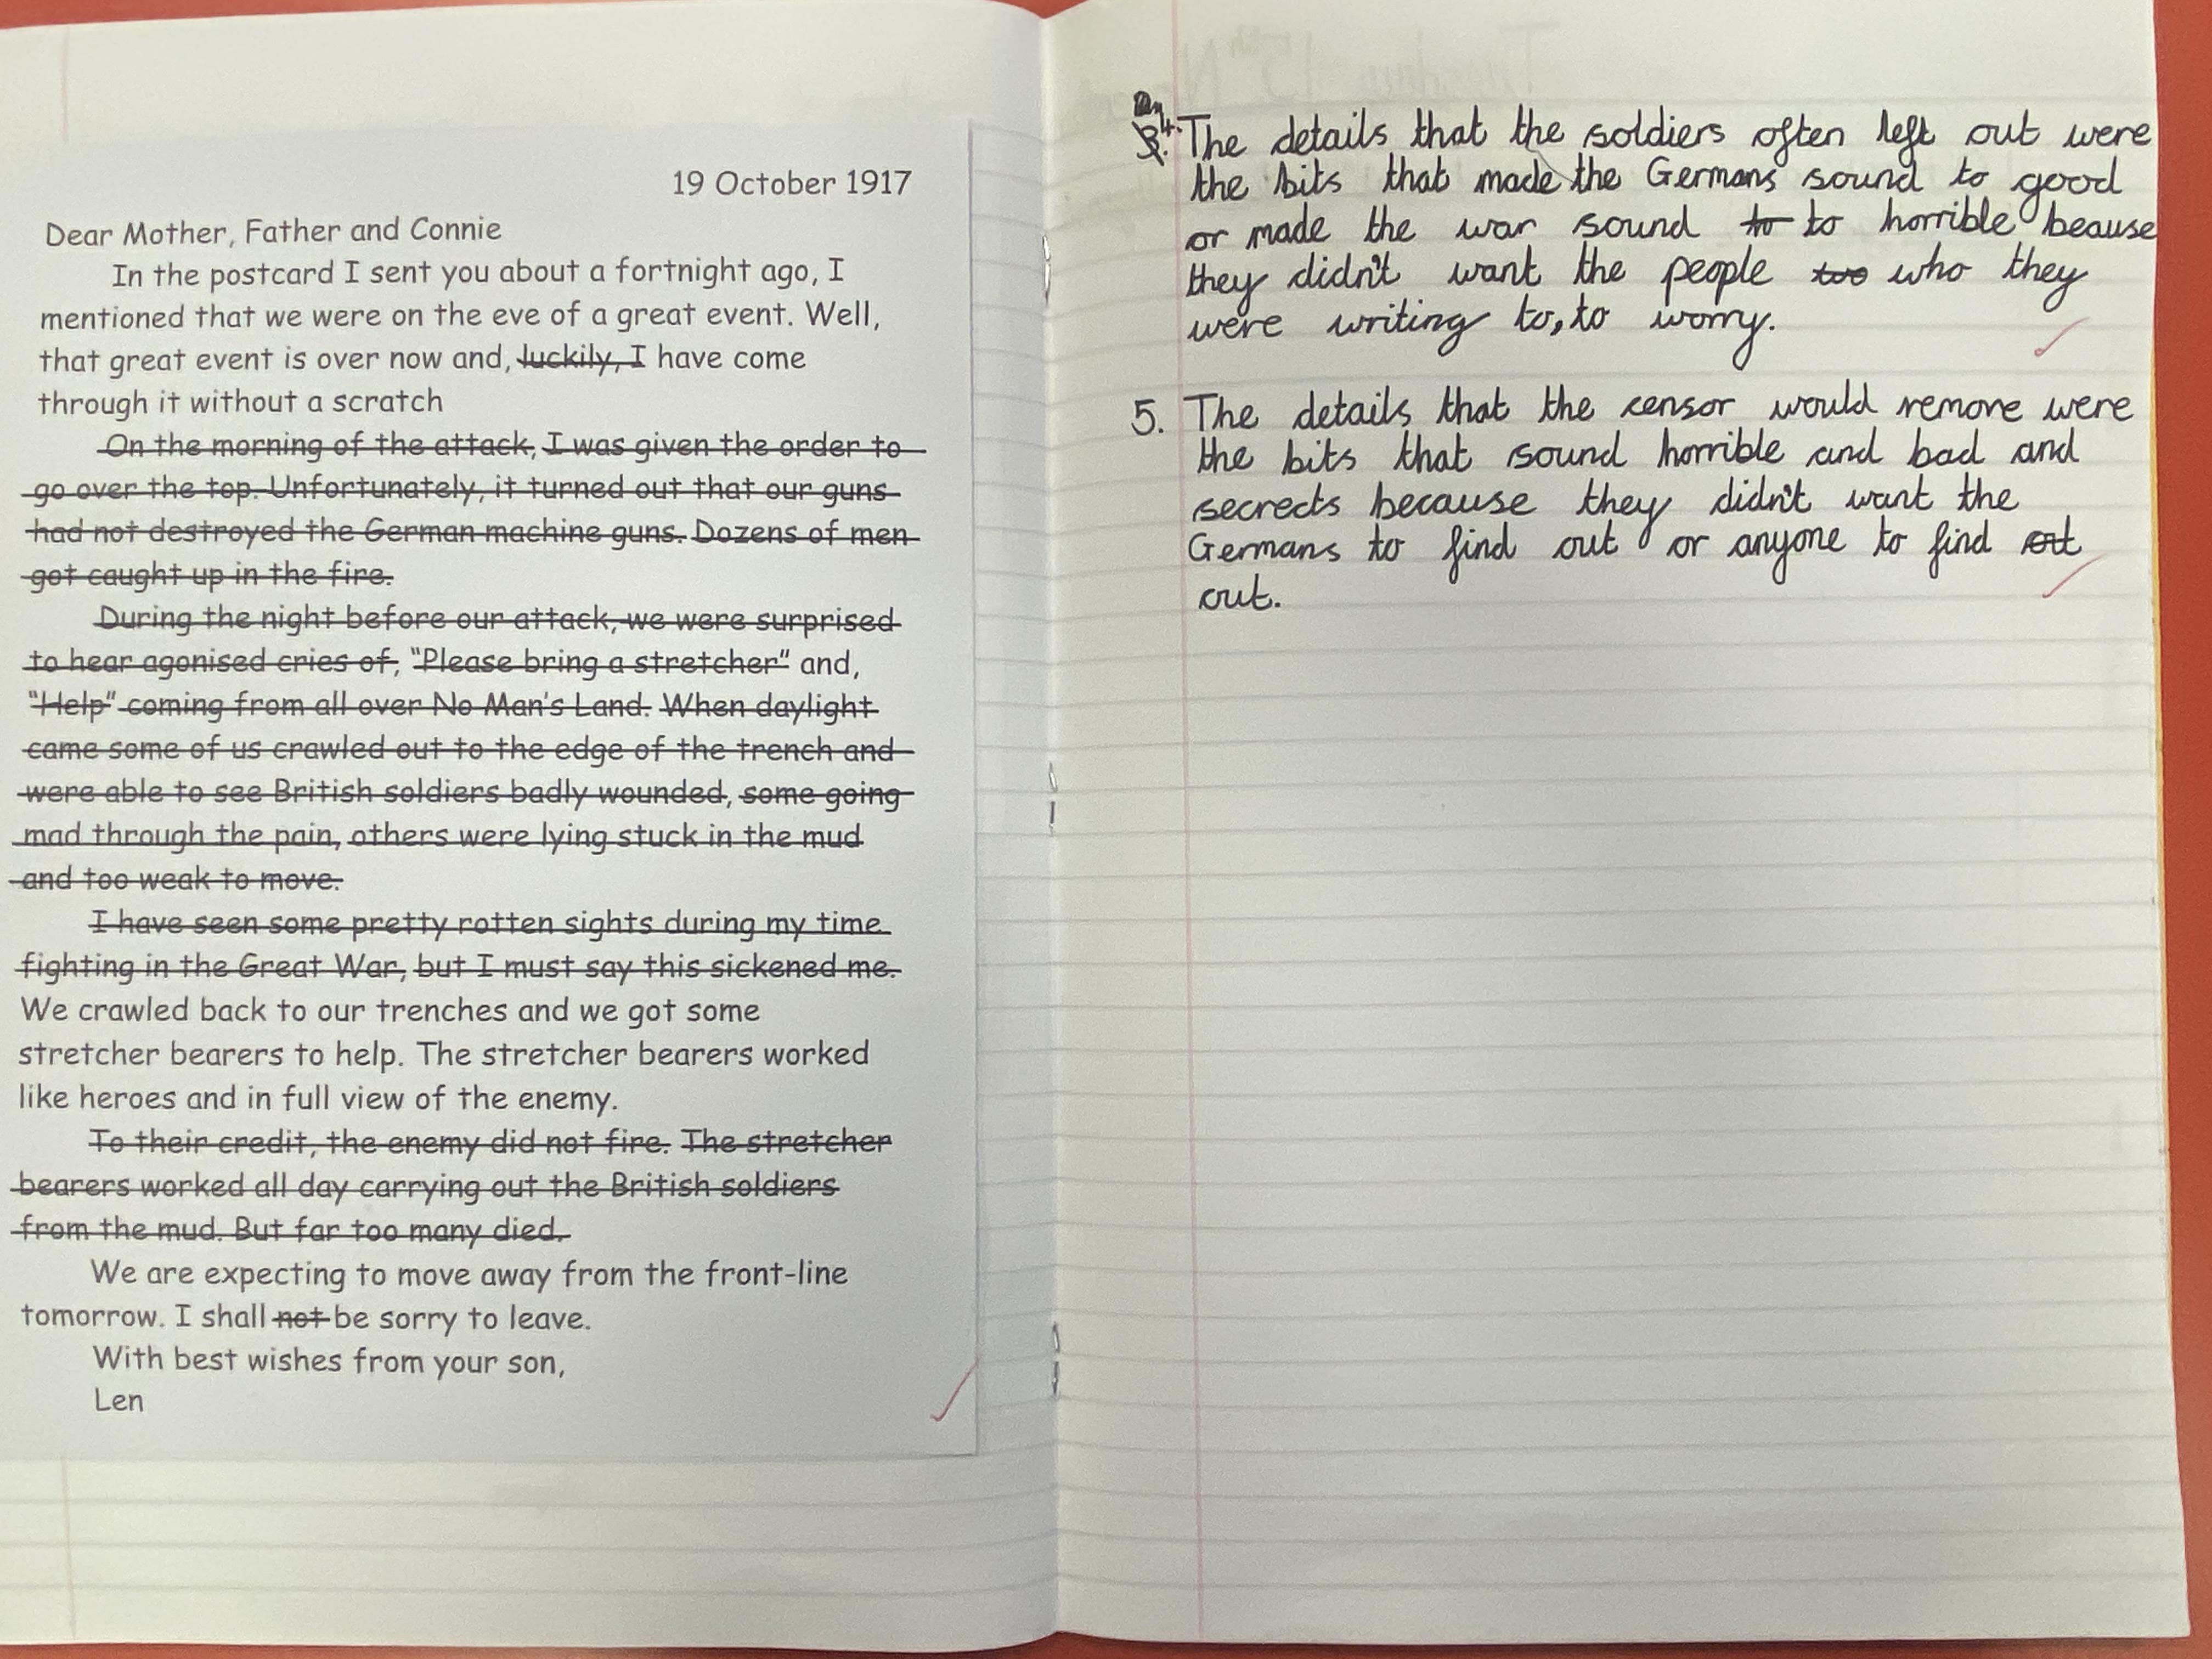 19 October 1917
Dear Mother, Father and Connie
In the postcard I sent you about a fortnight ago, I
mentioned that we were on the eve of a great event. Well,
that great event is over now and, luckily, I have come
through it without a scratch
On the morning of the attack, I was given the order to
go over the top. Unfortunately, it turned out that our guns
had not destroyed the German machine guns. Dozens of men
got caught up in the fire.
During the night before our attack, we were surprised
to hear agonised cries of, "Please bring a stretcher" and,
"Help" coming from all over No Man's Land. When daylight
came some of us crawled out to the edge of the trench and
were able to see British soldiers badly wounded, some going
mad through the pain, others were lying stuck in the mud
and too weak to move.
I have seen some pretty rotten sights during my time
fighting in the Great War, but I must say this sickened me.
We crawled back to our trenches and we got some
stretcher bearers to help. The stretcher bearers worked
like heroes and in full view of the enemy.
To their credit, the enemy did not fire. The stretcher
bearers worked all day carrying out the British soldiers
from the mud. But far too many died.
We are expecting to move away from the front-line
tomorrow. I shall not be sorry to leave.
With best wishes from your son,
Len
4. The details that the soldiers often left out were
the bits that made the Germans sound to good
or made the war sound to to horrible beause
they didn't want the people too who they
were writing to, to worry.
5. The details that the censor would remove were
the bits that sound horrible and bad and
secrects because they didn't want the
Germans to find out or anyone to find out
out.